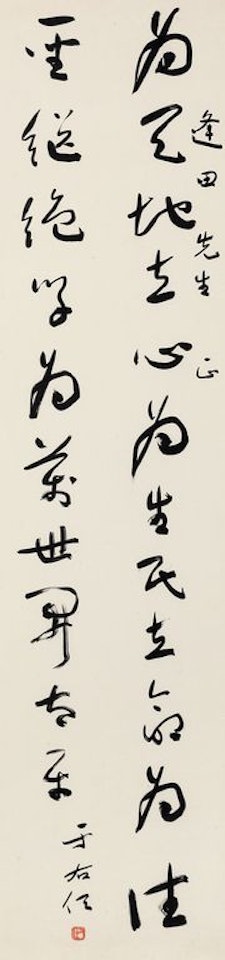 逢田先生正
為天地立心為生民立命為往
聖繼絕學為萬世開太平
于右任